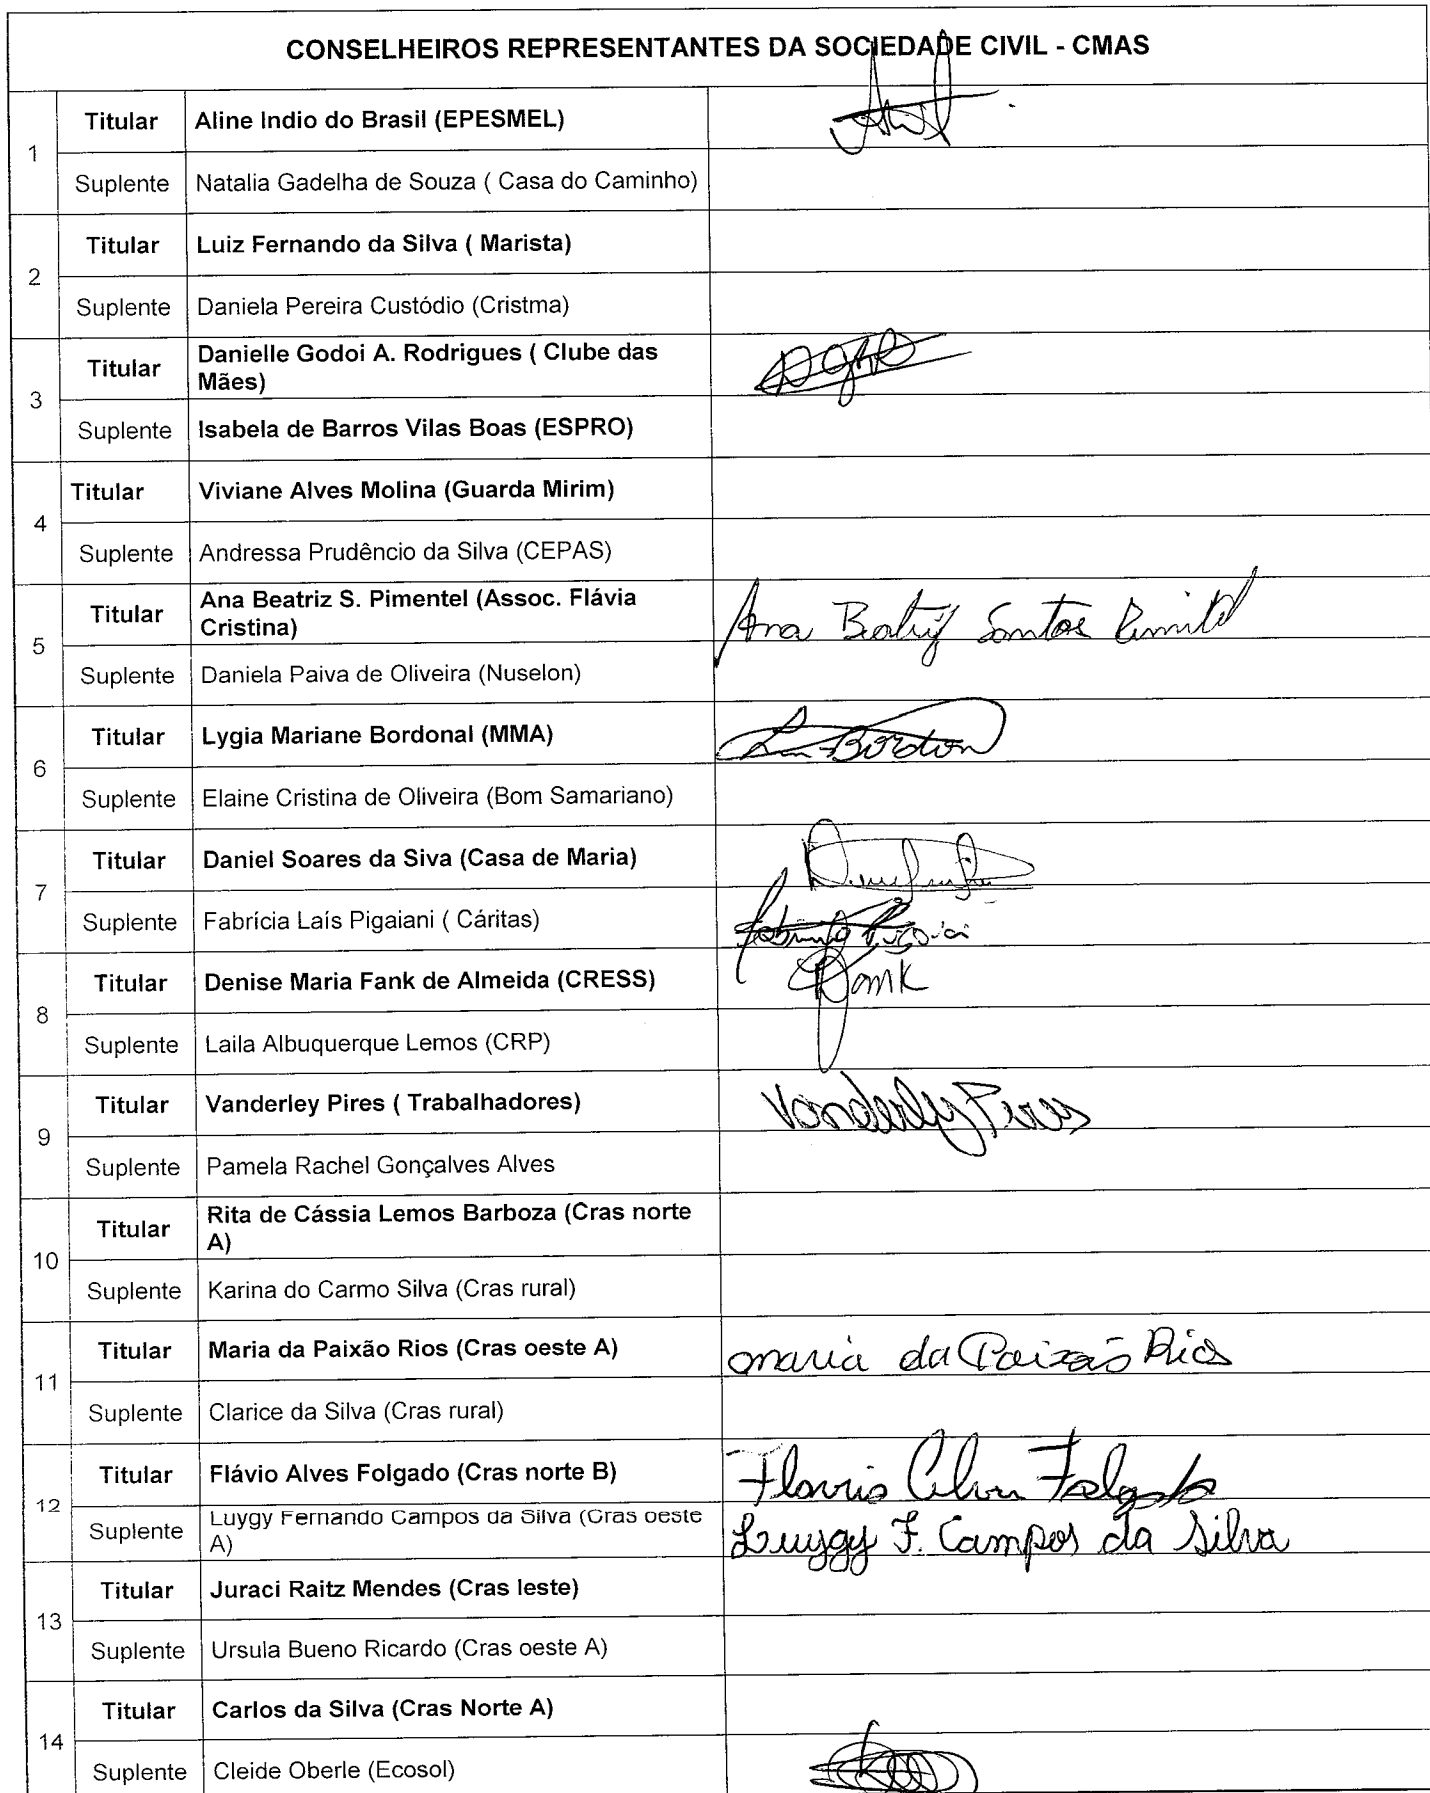 CONSELHEIROS REPRESENTANTES DA SOCIEDADE CIVIL - CMAS
1
Titular Aline Indio do Brasil (EPESMEL)
Suplente Natalia Gadelha de Souza ( Casa do Caminho)
2
Titular Luiz Fernando da Silva ( Marista)
Suplente Daniela Pereira Custódio (Cristma)
3
Titular Danielle Godoi A. Rodrigues ( Clube das
Mães)
Suplente Isabela de Barros Vilas Boas (ESPRO)
4
Titular Viviane Alves Molina (Guarda Mirim)
Suplente Andressa Prudêncio da Silva (CEPAS)
5
Titular Ana Beatriz S. Pimentel (Assoc. Flávia
Cristina)
Ana Beatriz Santos Pimentel
Suplente Daniela Paiva de Oliveira (Nuselon)
6
Titular Lygia Mariane Bordonal (MMA)
Suplente Elaine Cristina de Oliveira (Bom Samariano)
7
Titular Daniel Soares da Siva (Casa de Maria)
Suplente Fabrícia Laís Pigaiani ( Cáritas)
8
Titular Denise Maria Fank de Almeida (CRESS)
Suplente Laila Albuquerque Lemos (CRP)
9
Titular Vanderley Pires ( Trabalhadores) Vanderley Pires
Suplente Pamela Rachel Gonçalves Alves
10
Titular Rita de Cássia Lemos Barboza (Cras norte
A)
Suplente Karina do Carmo Silva (Cras rural)
11
Titular Maria da Paixão Rios (Cras oeste A) maria da Paixão Rios
Suplente Clarice da Silva (Cras rural)
12
Titular Flávio Alves Folgado (Cras norte B) Flavio Alves Folgado
Suplente Luygy Fernando Campos da Silva (Cras oeste
A)
Luygy F. Campos da Silva
13
Titular Juraci Raitz Mendes (Cras leste)
Suplente Ursula Bueno Ricardo (Cras oeste A)
14
Titular Carlos da Silva (Cras Norte A)
Suplente Cleide Oberle (Ecosol)